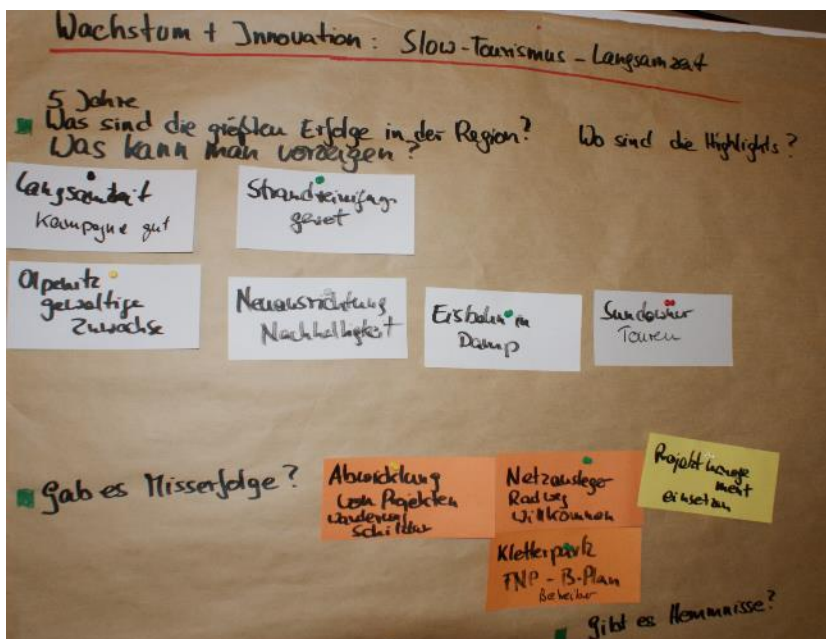 Wachstum + Innovation: Slow-Tourismus - Langsamzeit
5 Jahre
Was sind die größten Erfolge in der Region? Wo sind die Highlights?
Was kann man vorzeigen?
Langsamzeit
Kampagne gut
Strandreinigungs
gerät
Olpenitz
gewaltige
Zuwächse
Neuausrichtung
Nachhaltigkeit
Eisbahn in
Damp
Sundowner
Touren
Gab es Misserfolge?
Abwicklung
von Projekten
Wanderung
Schilder
Netzausleger
Radweg
Willkommen
Projektmanage
ment
einsetzen
Kletterpark
FNP - B-Plan
Betreiber
Gibt es Hemmnisse?